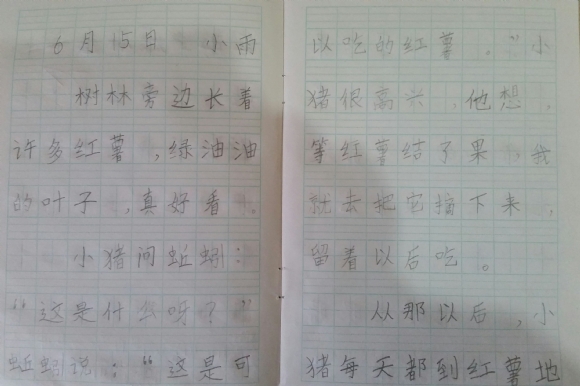 6月15日 小雨
树林旁边长着
许多红薯,绿油油
的叶子,真好看。
小猪问蚯蚓:
“这是什么呀?”
蚯蚓说:“这是可
以吃的红薯。”小
猪很高兴,他想,
等红薯结了果,我
就去把它摘下来,
留着以后吃。
从那以后,小
猪每天都到红薯地